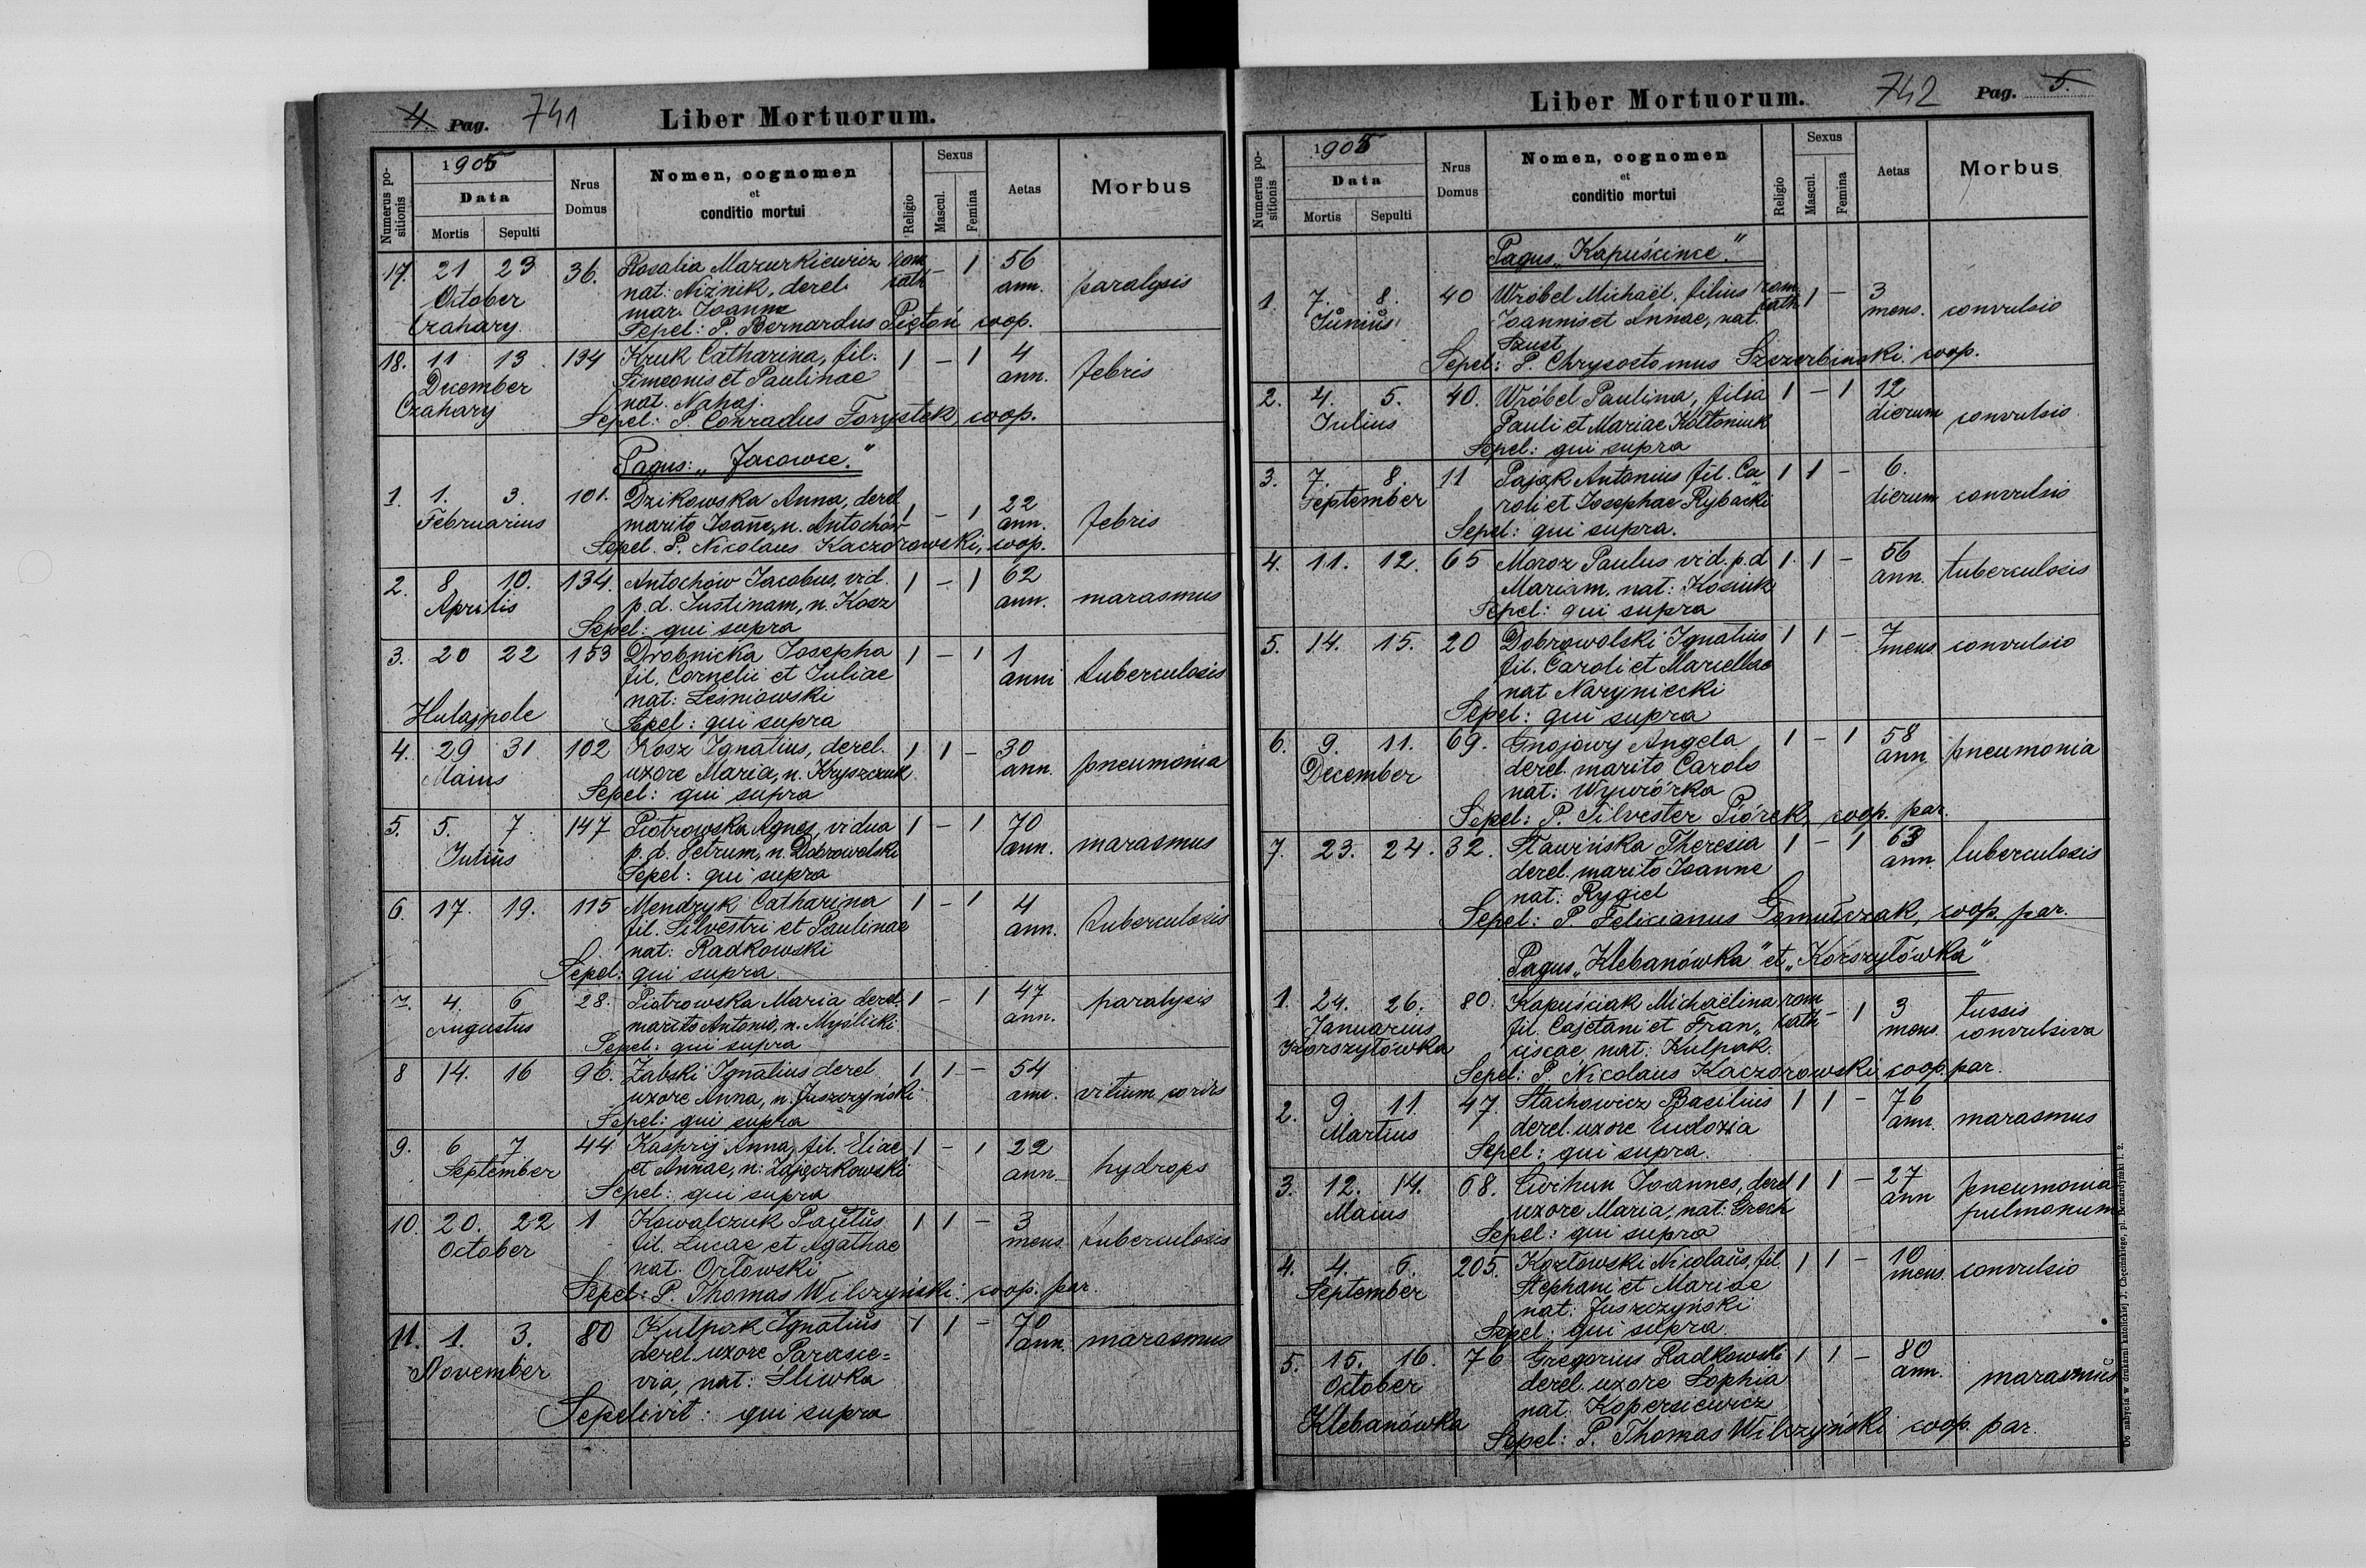 4. Pag. 741 Liber Mortuorum.
Numerus positionis 1905 Data Mortis Sepulti Nrus Domus Nomen, cognomen et conditio mortui Religio Sexus Mascul. Femina Aetas Morbus
17. 21 23 36. Rosalia Mazurkiewicz rom. - 1 56 paralysis
October nat: Niżnik, derel. cath ann.
mar. Joanne
Czahary. Sepel: P. Bernardus Piętoń coop.
18. 11 13 134 Kruk Catharina, fil. 1 - 1 4 febris
December Simeonis et Paulinae ann.
Czahary nat. Nahaj.
Sepel: P. Conradus Forystek, coop.
Pagus: „Jacowce."
1. 1. 3. 101. Dzikowska Anna, derel. 1 - 1 22 febris
Februarius marito Joañe, n. Antochów ann.
Sepel. P. Nicolaus Kaczorowski, coop.
2. 8 10. 134. Antochów Jacobus, vid. 1 - 1 62 marasmus
Aprilis p.d. Justinam, n. Kosz ann.
Sepel: qui supra
3. 20 22 153 Drobnicka Josepha 1 - 1 1 tuberculosis
fil. Cornelii et Juliae anni
nat: Leśniowski
Hulajpole Sepel: qui supra
4. 29 31 102 Kosz Ignatius, derel. 1 1 - 30 pneumonia
Maius uxore Maria, n. Kryszczuk ann.
Sepel: qui supra
5. 5. 7. 147 Piotrowska Agnes, vidua 1 - 1 70 marasmus
Julius p.d. Petrum, n. Dobrowolski ann.
Sepel: qui supra
6. 17. 19. 115 Mendzyk Catharina 1 - 1 4 tuberculosis
fil. Silvestri et Paulinae ann.
nat: Radkowski
Sepel: qui supra
7. 4. 6 28. Piotrowska Maria derel. 1 - 1 47 paralysis
Augustus marito Antonio, n. Myślicki ann.
Sepel: qui supra
8 14. 16 96. Żabski Ignatius derel. 1 1 - 54 vitium cordis
uxore Anna, n. Juszczyński ann.
Sepel: qui supra
9. 6 7. 44 Kaspryj Anna, fil. Eliae 1 - 1 22 hydrops
September et Annae, n: Zajączkowski ann.
Sepel: qui supra
10. 20. 22 1 Kowalczuk Paulus 1 1 - 3 tuberculosis
October fil. Lucae et Agathae mens.
nat. Orłowski
Sepel: P. Thomas Wilczyński. coop. par.
11. 1. 3. 80 Kulpak Ignatius 1 1 - 70 marasmus
November derel. uxore Parasce=
via, nat: Śliwka ann.
Sepelivit: qui supra
Liber Mortuorum. 742 Pag. 5.
Numerus positionis 1905 Data Mortis Sepulti Nrus Domus Nomen, cognomen et conditio mortui Religio Sexus Mascul. Femina Aetas Morbus
Pagus „Kapuścince."
1. 7. 8. 40 Wróbel Michaël. filius rom. 1 - 3 convulsio
Junius Joannis et Annae, nat. cath. mens.
Szust
Sepel: P. Chrysostomus Szczerbiński. coop.
2. 4. 5. 40. Wróbel Paulina, filia 1 - 1 12 convulsio
Julius Pauli et Mariae Kołtoniuk dierum
Sepel: qui supra
3. 7. 8. 11 Pająk Antonius fil. Ca„ 1 1 - 6. convulsio
September roli et Josephae Rybacki dierum
Sepel: qui supra.
4. 11. 12. 65 Moroz Paulus vid. p.d. 1. 1 - 56 tuberculosis
Mariam, nat: Kosiuk ann.
Sepel: qui supra
5. 14. 15. 20 Dobrowolski Ignatius 1 1 - 7 mens. convulsio
fil. Caroli et Marcellae
nat Naryniecki
Sepel: qui supra
6. 9. 11. 69. Gnojowy Angela 1 - 1 58 pneumonia
December derel. marito Carolo ann.
nat: Wywiórka
Sepel: P. Silvester Piórek, coop. par.
7. 23. 24. 32. Sławińska Theresia 1 - 1 63 tuberculosis
derel. marito Joanne ann.
nat: Rygiel
Sepel: P. Felicianus Gomułczak, coop. par.
Pagus „Klebanówka" et „Korszyłówka"
1. 24. 26. 80. Kapuściak Michaëlina rom - 1 3 tussis
Januarius fil. Cajetani et Fran„ cath mens. convulsiva
Korszyłówka ciscae, nat: Kulpak.
Sepel: P. Nicolaus Kaczorowski, coop. par.
2. 9. 11. 47. Stachowicz Basilius 1 1 - 76 marasmus
Martius derel. uxore Eudoxia ann.
Sepel: qui supra.
3. 12. 14. 68. Cwihun Joannes, derel 1 1 - 27 pneumonia
Maius uxore Maria, nat: Grech ann pulmonum
Sepel: qui supra
4. 4. 6. 205. Kozłowski Nicolaus, fil. 1 1 - 10 convulsio
September Stephani et Mariae mens.
nat: Juszczyński
Sepel: qui supra.
5. 15. 16. 76 Gregorius Radkowski 1 1 - 80 marasmus
October derel. uxore Sophia ann.
nat. Kopersiewicz
Klebanówka
Sepel: P. Thomas Wilczyński coop. par.
Do nabycia w drukarni katolickiej J. Chęcińskiego, pl. Bernardyński l. 2.